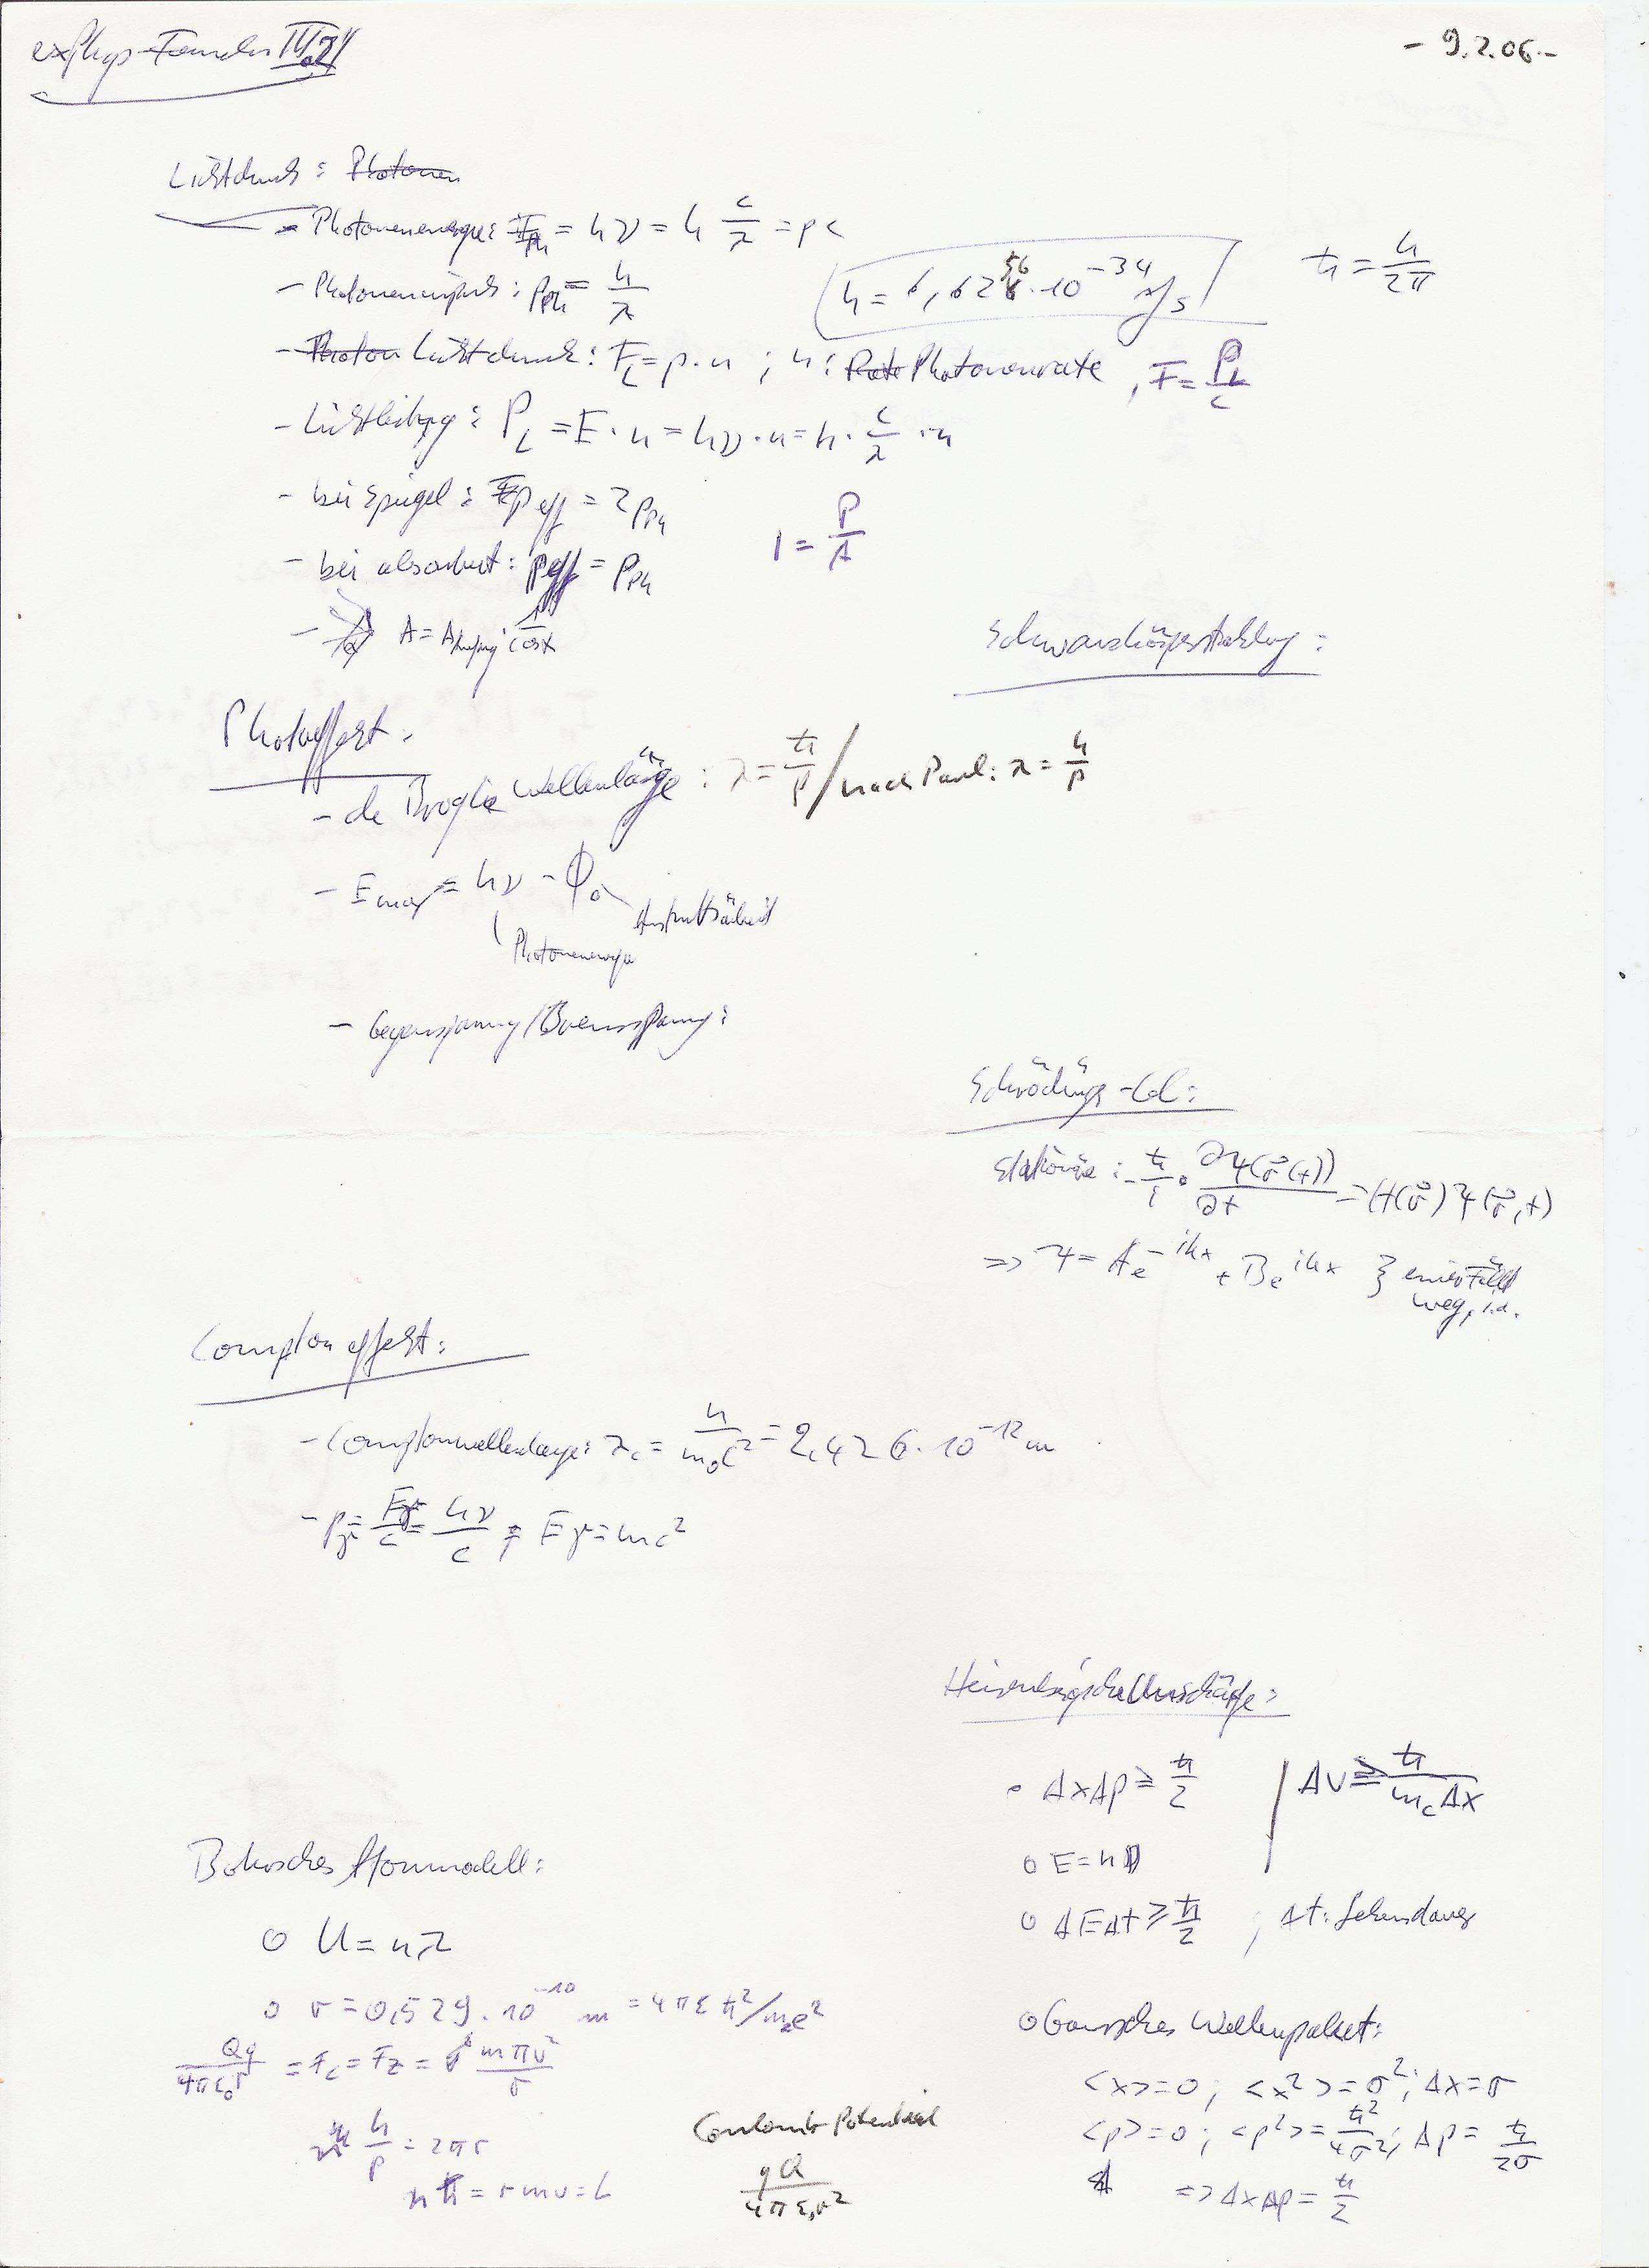 exPhys-Formeln III.2
- 9.2.06 -
Lichtdruck: Photonen
- Photonenenergie: E_Ph = hν = h c/λ = pc
- Photonenimpuls: p_Ph = h/λ
h = 6,6256·10^-34 Js
ħ = h/2π
- Photon Lichtdruck: F_L = p·n ; n: Rate Photonenrate , F = P_L/c
- Lichtleistg: P_L = E·n = hν·n = h·c/λ·n
- bei Spiegel: p_eff = 2 p_Ph
I = P/A
- bei absorbiert: p_eff = p_Ph
- A = A 1/cos α
Schwarzkörperstrahlung:
Photoeffekt:
- de Broglie Wellenlänge: λ = ħ/p / nach Paul: λ = h/p
- E_max = hν - Φ_0
Austrittsarbeit
Photonenenergie
- Gegenspannung/Bremsspannung:
Schrödinger-Gl:
Stationär: -ħ/i · ∂ψ(r⃗(t))/∂t = H(r⃗) ψ(r⃗,t)
=> ψ = A e^-ikx + B e^ikx } einer fällt
weg, i.a.
Comptoneffekt:
- Comptonwellenlänge: λ_c = h/m_0c² = 2,426·10^-12 m
- p_γ = E_γ/c = hν/c ; E_γ = mc²
Heisenbergsche Unschärfe:
o ΔxΔp ≥ ħ/2 | Δv ≥ ħ/m_cΔx
o E = hν
o ΔEΔt ≥ ħ/2 ; Δt: Lebensdauer
Bohrsches Atommodell:
o U = nλ
o r = 0,529·10^-10 m = 4πεħ²/m_e e²
Qq/4πε_0r = F_C = F_Z = mπv²/r
h/p = 2πr
nħ = rmv = L
Coulomb-Potential
qQ/4πε_0r²
o Gaussches Wellenpaket:
<x>=0; <x²>=σ²; Δx=σ
<p>=0; <p²>=ħ²/4σ²; Δp=ħ/2σ
=> ΔxΔp = ħ/2